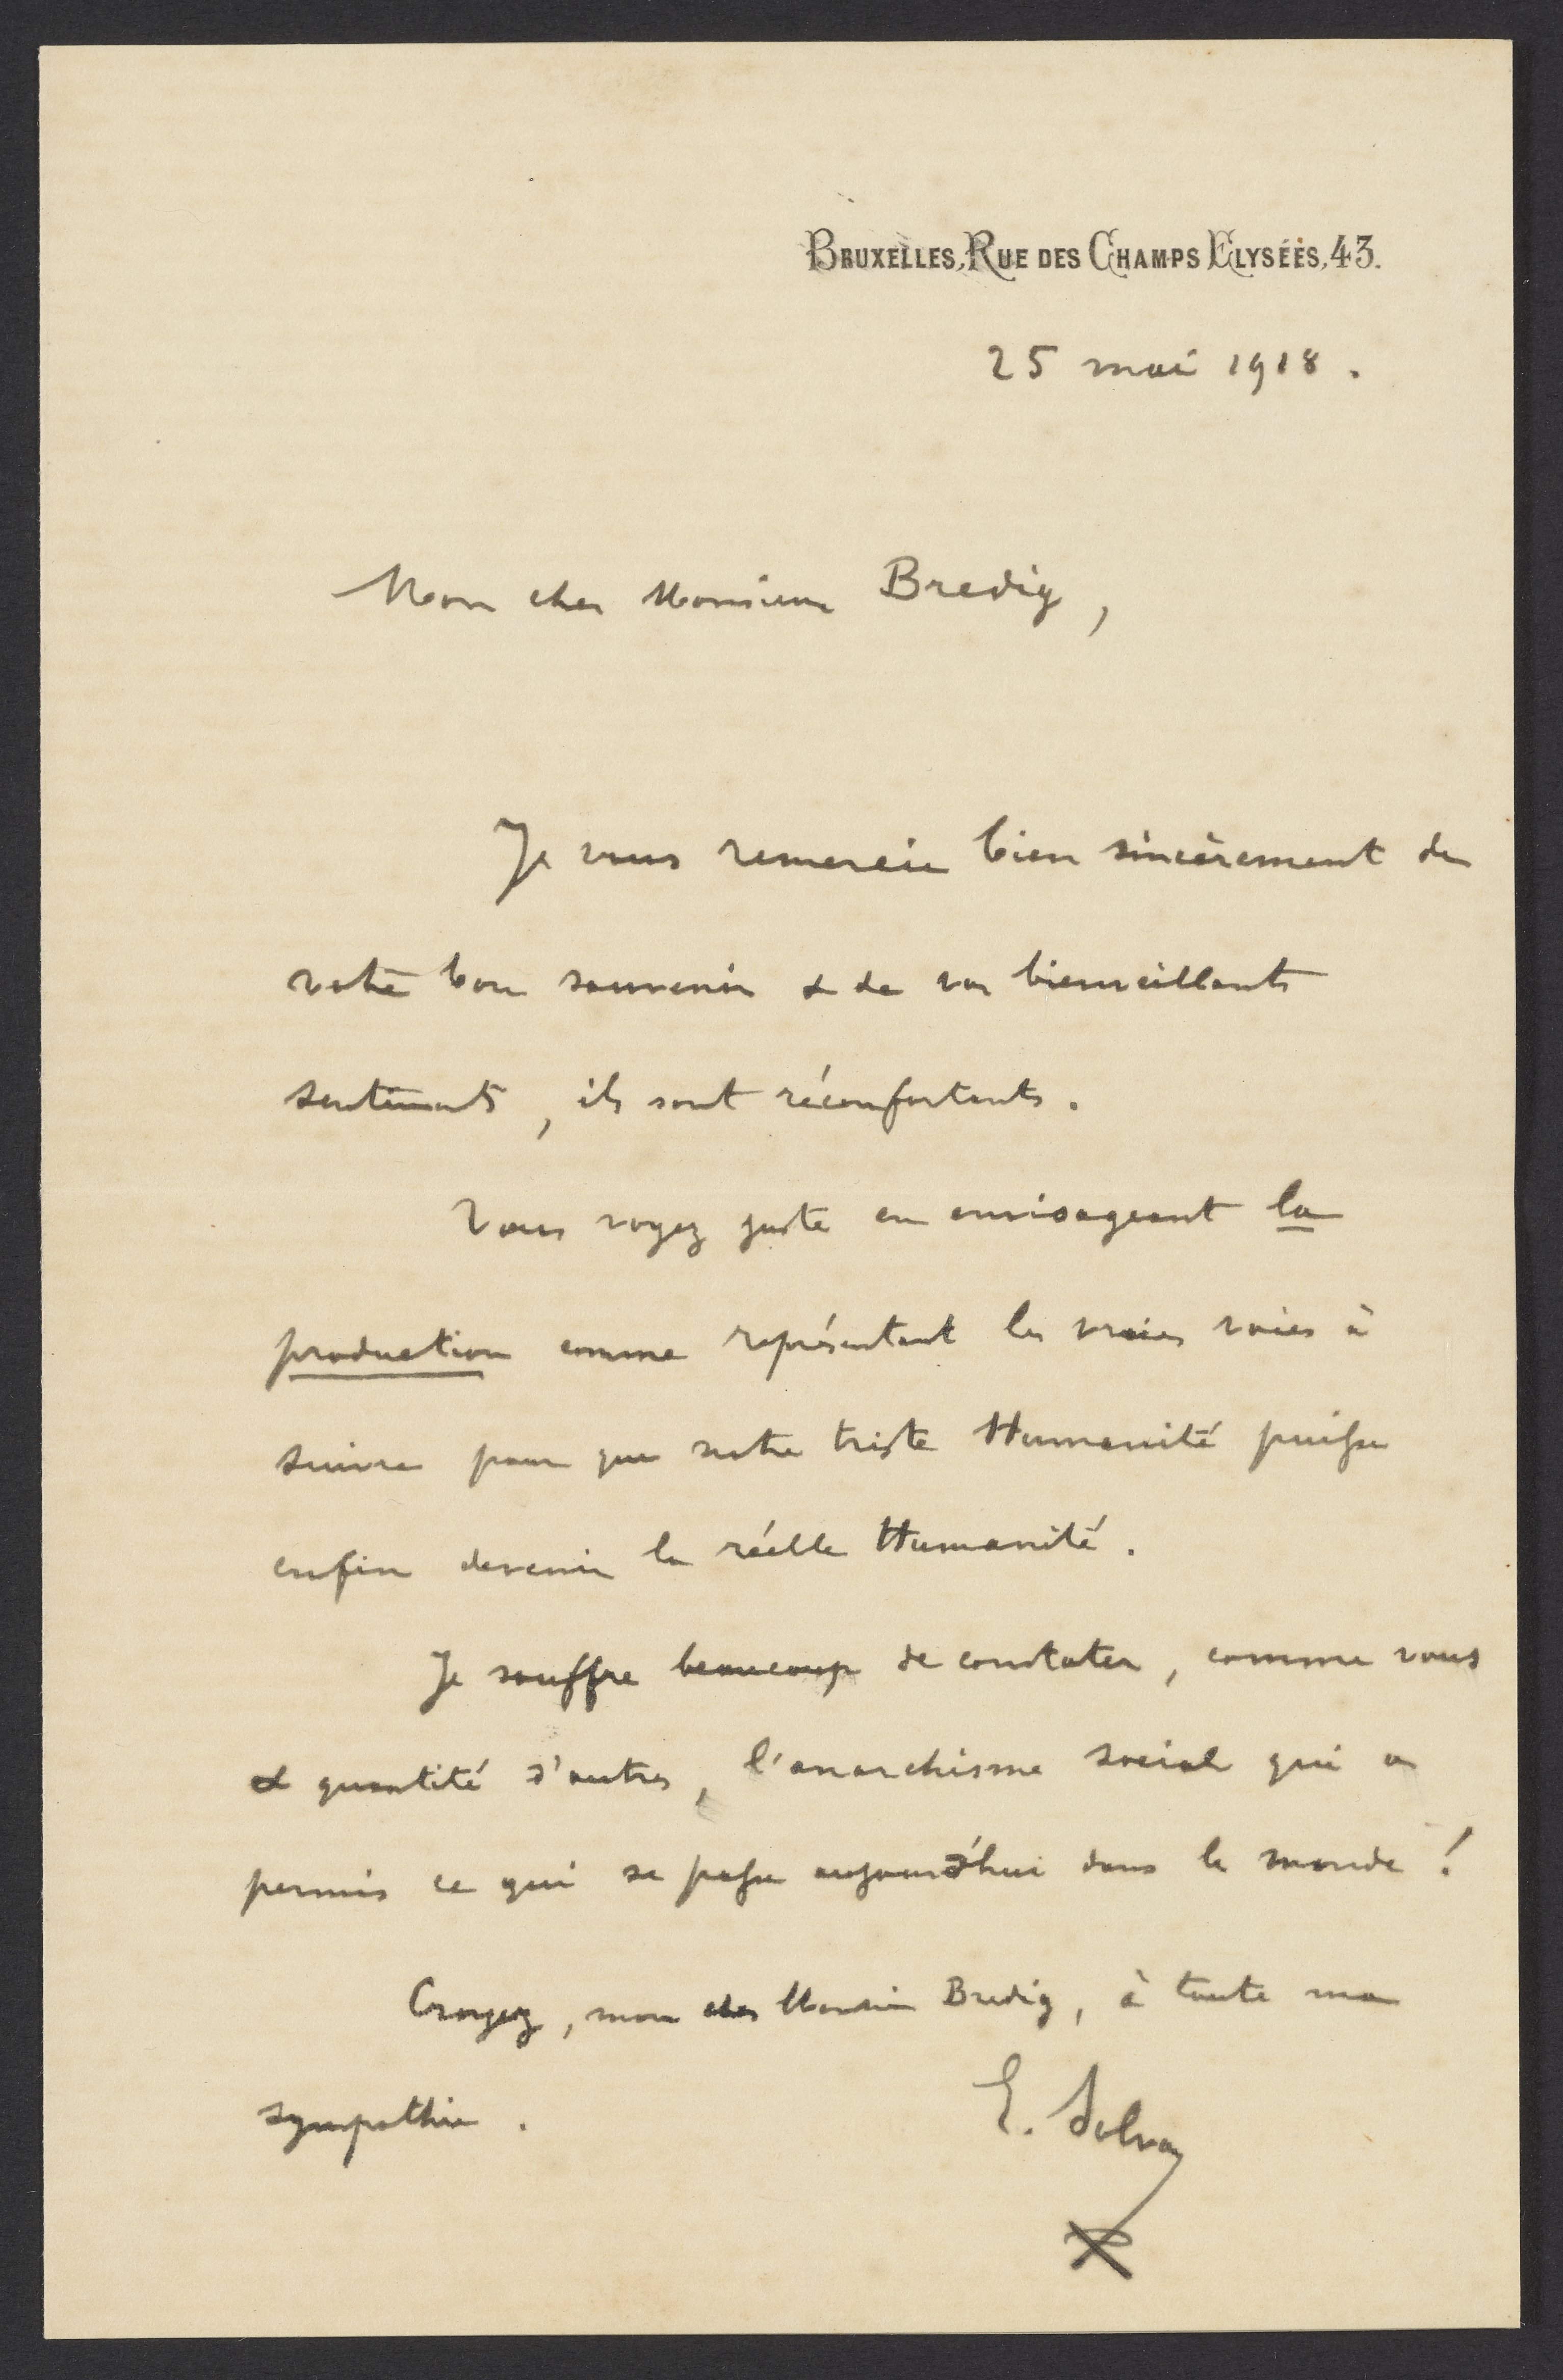 BRUXELLES, RUE DES CHAMPS ELYSÉES, 43.
25 mai 1918.
Mon cher Monsieur Bredig,
Je vous remercie bien sincèrement de
votre bon souvenir & de vos bienveillants
sentiments, ils sont réconfortants.
Vous voyez juste en envisageant la
production comme représentant les vraies voies à
suivre pour que notre triste Humanité puisse
enfin devenir la réelle Humanité.
Je souffre beaucoup de constater, comme vous
& quantité d'autres, l'anarchisme social qui a
permis ce qui se passe aujourd'hui dans le monde !
Croyez, mon cher Monsieur Bredig, à toute ma
sympathie.
E. Solvay